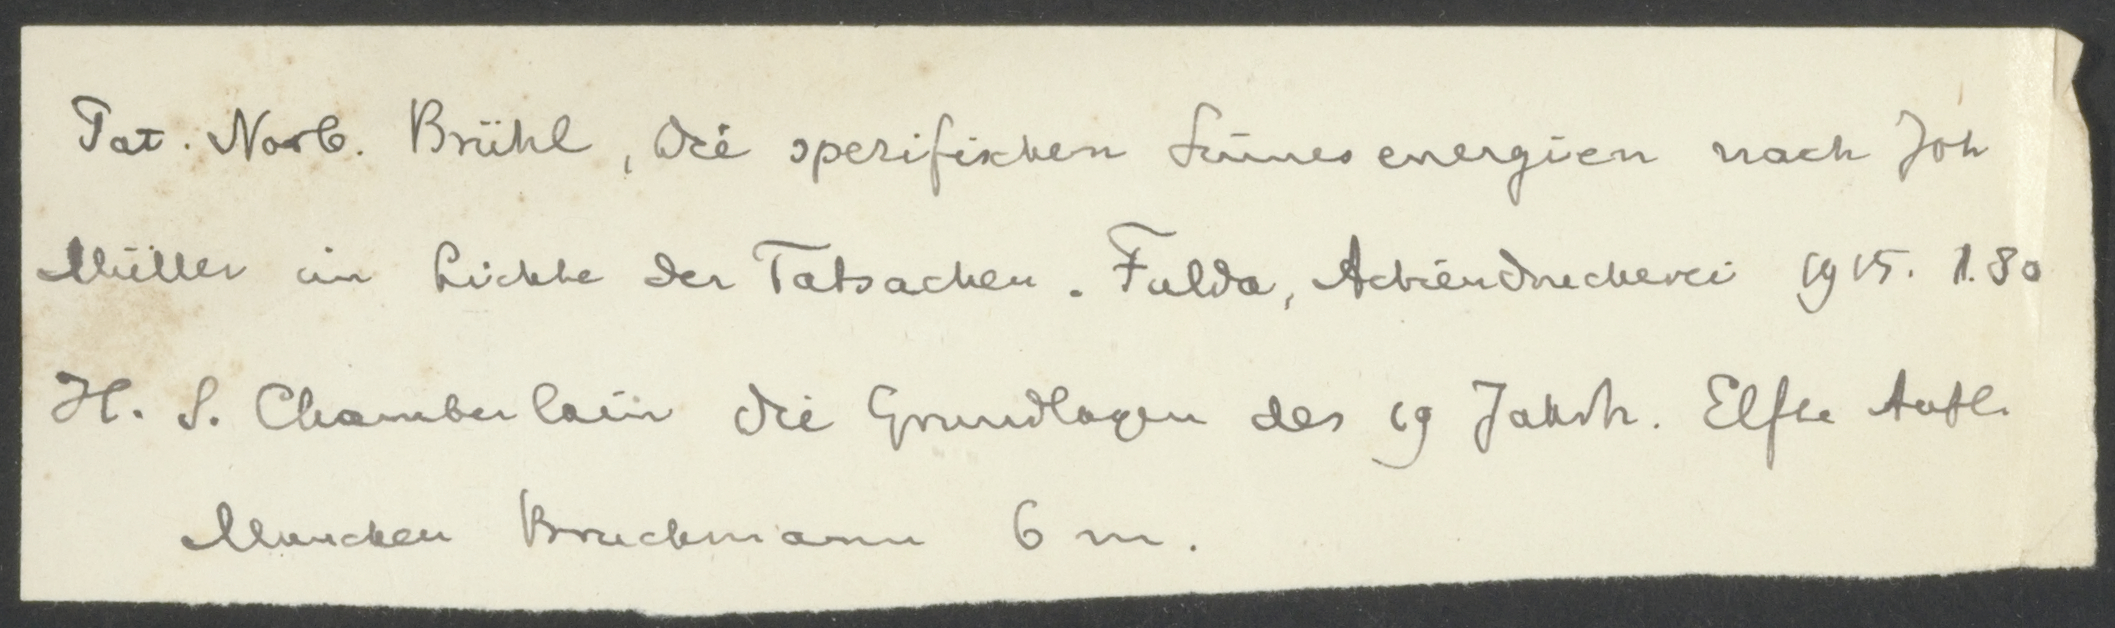 Pat. Norb. Brühl, die spezifischen Sinnesenergien nach Joh
Müller im Lichte der Tatsachen. Fulda, Actiendruckerei 1915. 1.80
H. S. Chamberlain die Grundlagen des 19 Jahrh. Elfte Aufl.
Munchen Bruckmann 6 m.